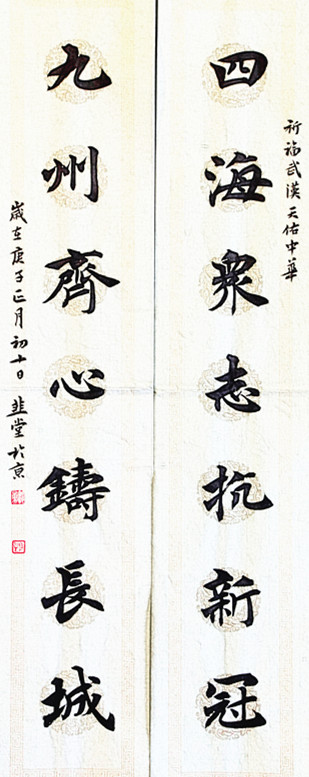 祈福武漢天佑中華
四海衆志抗新冠
九州齊心鑄長城
歲在庚子正月初十日 韭堂於京